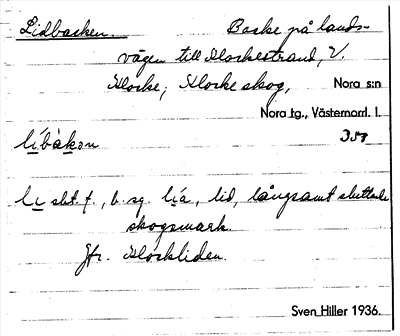 Lidbacken. Backe på lands-
vägen till Klockestrand, V.
Klocke, Klocke skog, Nora s:n
Nora tg., Västernorrl. l.
líbàkɒn
li sbt. f., b. sg. lía, lid, långsamt sluttande
skogsmark.
Jfr. Klockliden.
Sven Hiller 1936.